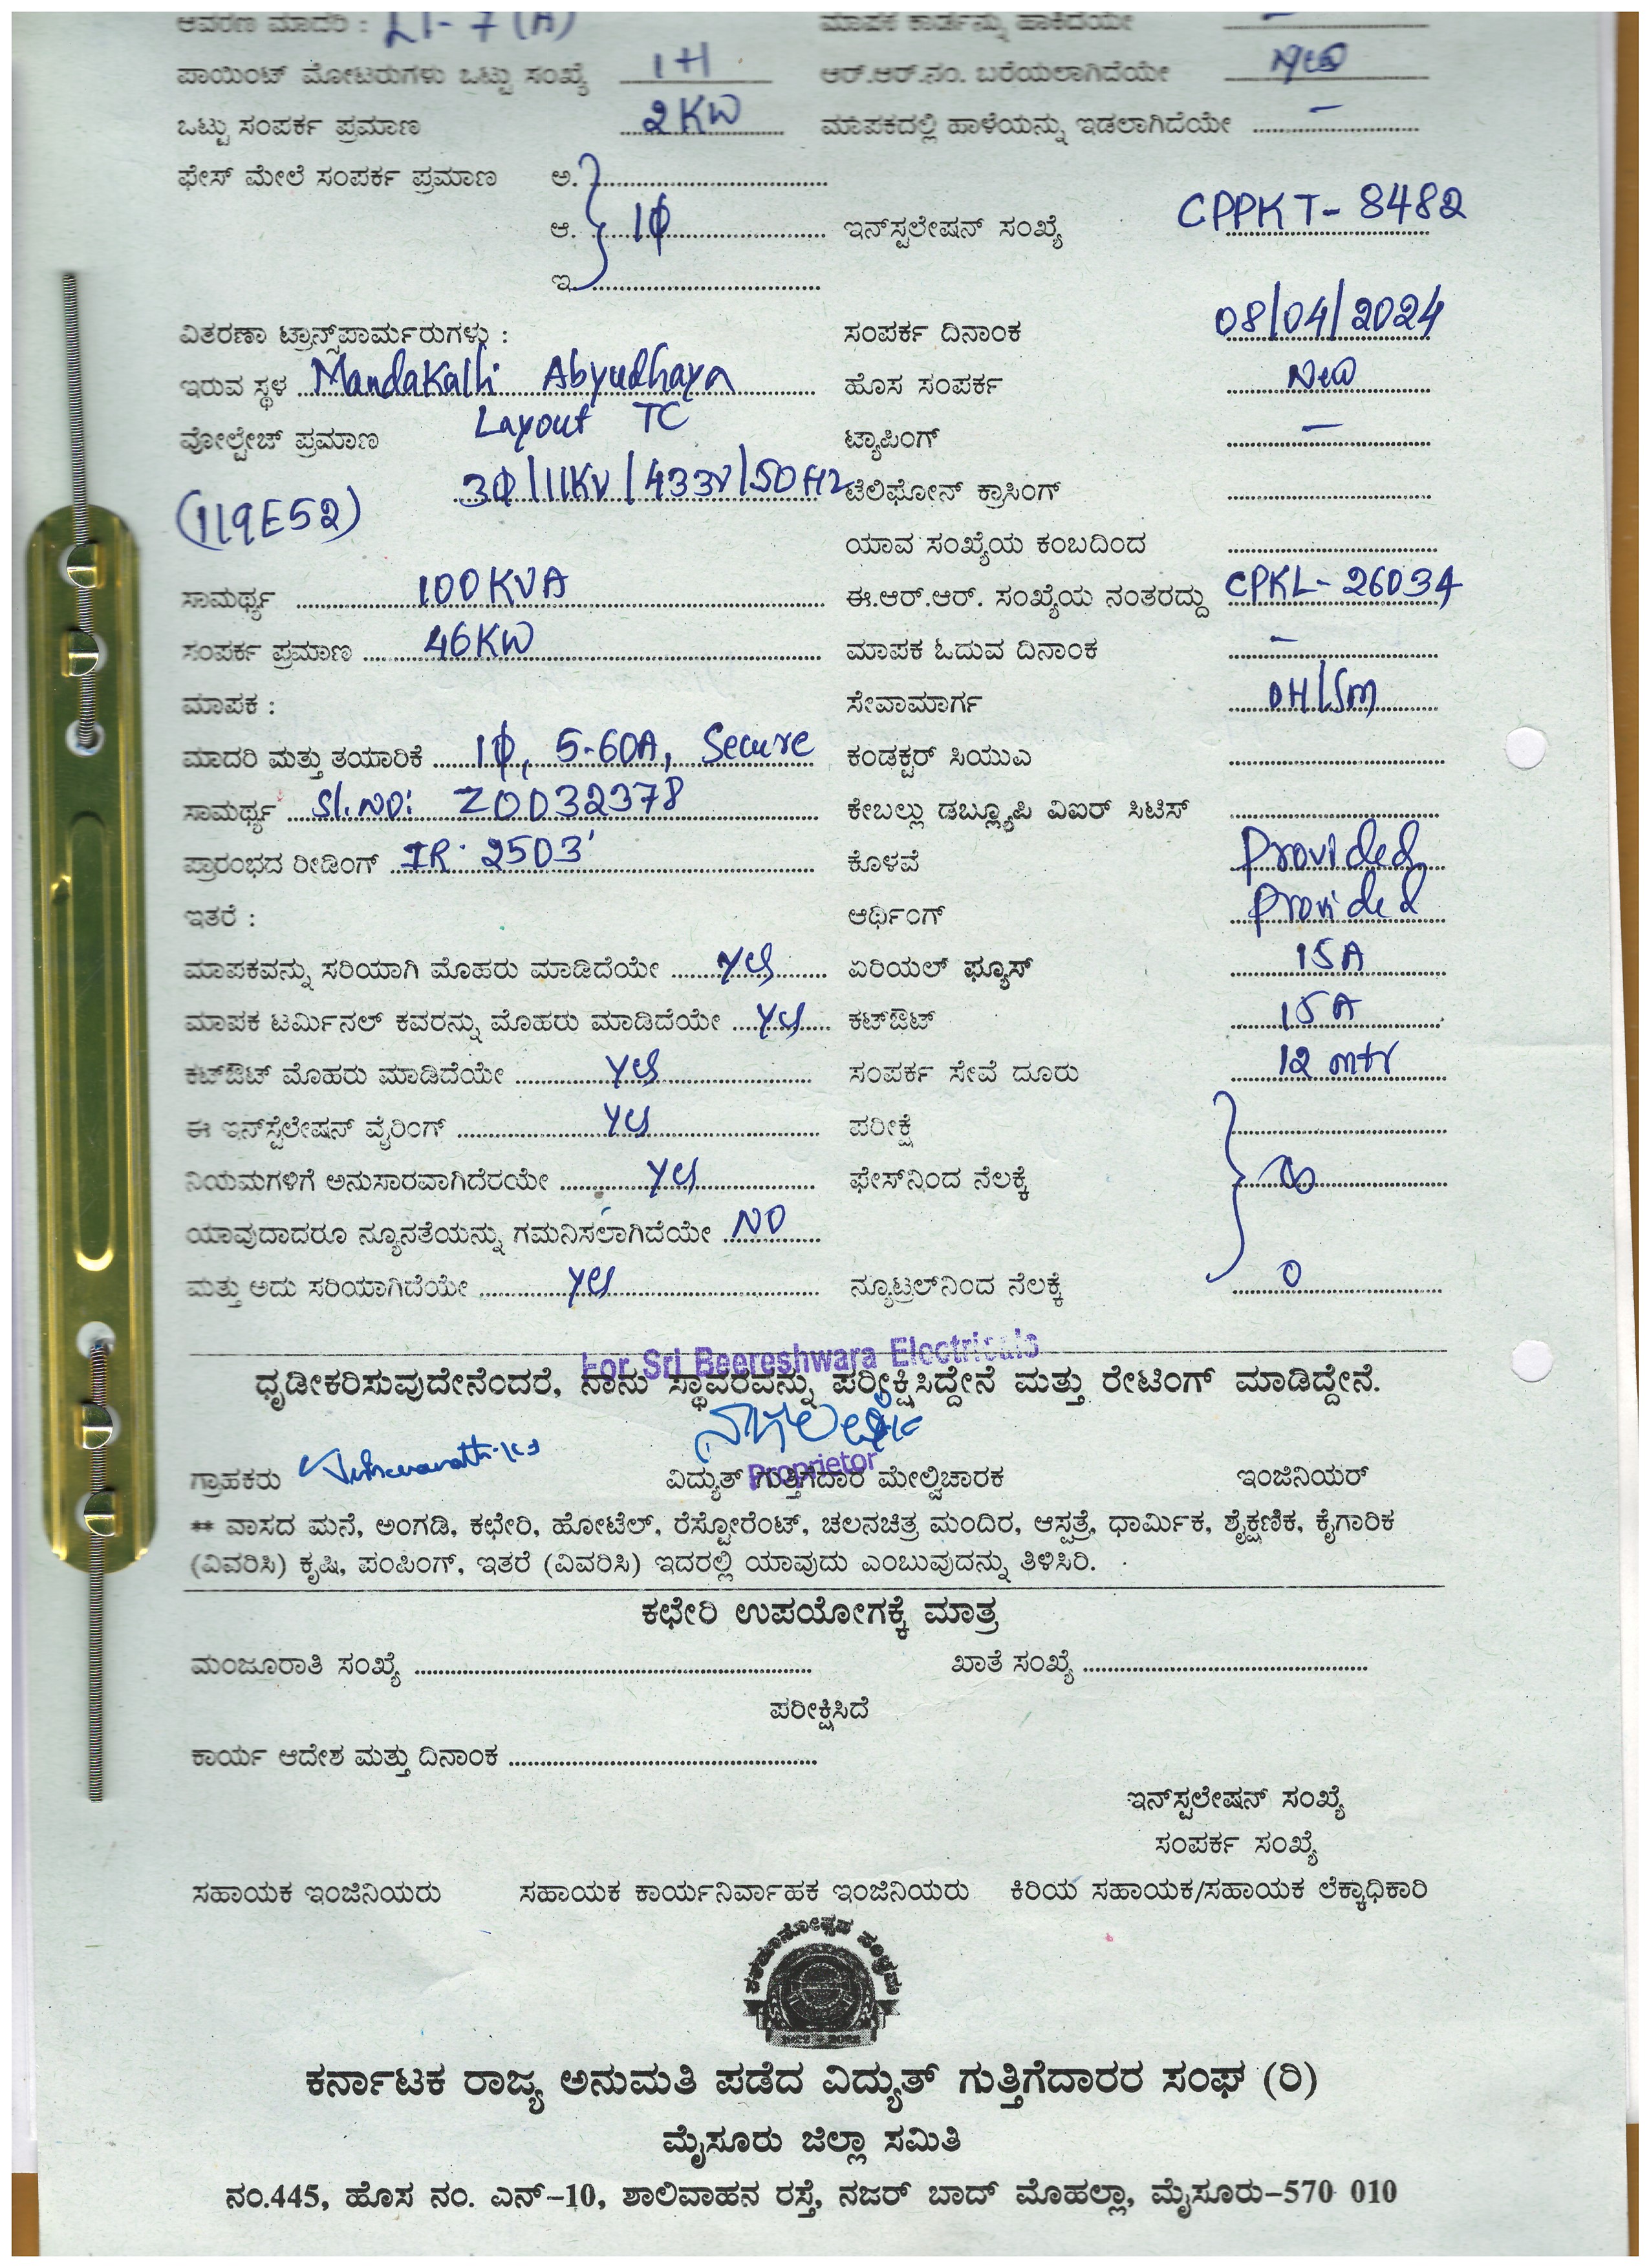 ಆವರಣ ಮಾದರಿ : LT-7(A) ಮಾಪಕ ಕಾರ್ಡನ್ನು ಹಾಕಿದೆಯೇ –
ಪಾಯಿಂಟ್ ಮೋಟರುಗಳು ಒಟ್ಟು ಸಂಖ್ಯೆ 1H ಆರ್.ಆರ್.ನಂ. ಬರೆಯಲಾಗಿದೆಯೇ
ಒಟ್ಟು ಸಂಪರ್ಕ ಪ್ರಮಾಣ 2KW ಮಾಪಕದಲ್ಲಿ ಹಾಳೆಯನ್ನು ಇಡಲಾಗಿದೆಯೇ –
ಫೇಸ್ ಮೇಲೆ ಸಂಪರ್ಕ ಪ್ರಮಾಣ ಅ.
ಆ. 1ϕ ಇನ್‌ಸ್ಟಲೇಷನ್ ಸಂಖ್ಯೆ CPPKT-8482
ಇ.
ವಿತರಣಾ ಟ್ರಾನ್ಸ್‌ಪಾರ್ಮರುಗಳು : ಸಂಪರ್ಕ ದಿನಾಂಕ 08/04/2024
ಇರುವ ಸ್ಥಳ Mandakalli Abyudhaya ಹೊಸ ಸಂಪರ್ಕ New
Layout TC
ವೋಲ್ಟೇಜ್ ಪ್ರಮಾಣ ಟ್ಯಾಪಿಂಗ್ –
3ϕ/11KV/433V/50HZ ಟೆಲಿಫೋನ್ ಕ್ರಾಸಿಂಗ್
(119E52)
ಯಾವ ಸಂಖ್ಯೆಯ ಕಂಬದಿಂದ
ಸಾಮರ್ಥ್ಯ 100KVA ಈ.ಆರ್.ಆರ್. ಸಂಖ್ಯೆಯ ನಂತರದ್ದು CPKL-26034
ಸಂಪರ್ಕ ಪ್ರಮಾಣ 46KW ಮಾಪಕ ಓದುವ ದಿನಾಂಕ –
ಮಾಪಕ : ಸೇವಾಮಾರ್ಗ OH/SM
ಮಾದರಿ ಮತ್ತು ತಯಾರಿಕೆ 1ϕ, 5-60A, Secure ಕಂಡಕ್ಟರ್ ಸಿಯುಎ
ಸಾಮರ್ಥ್ಯ Sl.NO: Z0032378 ಕೇಬಲ್ಲು ಡಬ್ಲ್ಯೂಪಿ ವಿಐರ್ ಸಿಟಿಸ್
ಪ್ರಾರಂಭದ ರೀಡಿಂಗ್ IR: 2503' ಕೊಳವೆ Provided
ಇತರೆ : ಆರ್ಥಿಂಗ್ Provided
ಮಾಪಕವನ್ನು ಸರಿಯಾಗಿ ಮೊಹರು ಮಾಡಿದೆಯೇ Yes ಏರಿಯಲ್ ಫ್ಯೂಸ್ 15A
ಮಾಪಕ ಟರ್ಮಿನಲ್ ಕವರನ್ನು ಮೊಹರು ಮಾಡಿದೆಯೇ Yes ಕಟ್‌ಔಟ್ 15A
ಕಟ್‌ಔಟ್ ಮೊಹರು ಮಾಡಿದೆಯೇ Yes ಸಂಪರ್ಕ ಸೇವೆ ದೂರು 12 mtr
ಈ ಇನ್‌ಸ್ಟೆಲೇಷನ್ ವೈರಿಂಗ್ Yes ಪರೀಕ್ಷೆ
ನಿಯಮಗಳಿಗೆ ಅನುಸಾರವಾಗಿದೆರಯೇ Yes ಫೇಸ್‌ನಿಂದ ನೆಲಕ್ಕೆ ∞
ಯಾವುದಾದರೂ ನ್ಯೂನತೆಯನ್ನು ಗಮನಿಸಲಾಗಿದೆಯೇ NO
ಮತ್ತು ಅದು ಸರಿಯಾಗಿದೆಯೇ Yes ನ್ಯೂಟ್ರಲ್‌ನಿಂದ ನೆಲಕ್ಕೆ 0
For Sri Beereshwara Electricals
ಧೃಡೀಕರಿಸುವುದೇನೆಂದರೆ, ನಾನು ಸ್ಥಾವರವನ್ನು ಪರೀಕ್ಷಿಸಿದ್ದೇನೆ ಮತ್ತು ರೇಟಿಂಗ್ ಮಾಡಿದ್ದೇನೆ.
Proprietor
ಗ್ರಾಹಕರು ವಿದ್ಯುತ್ ಗುತ್ತಿಗೆದಾರ ಮೇಲ್ವಿಚಾರಕ ಇಂಜಿನಿಯರ್
** ವಾಸದ ಮನೆ, ಅಂಗಡಿ, ಕಛೇರಿ, ಹೋಟೆಲ್, ರೆಸ್ಟೋರೆಂಟ್, ಚಲನಚಿತ್ರ ಮಂದಿರ, ಆಸ್ಪತ್ರೆ, ಧಾರ್ಮಿಕ, ಶೈಕ್ಷಣಿಕ, ಕೈಗಾರಿಕ
(ವಿವರಿಸಿ) ಕೃಷಿ, ಪಂಪಿಂಗ್, ಇತರೆ (ವಿವರಿಸಿ) ಇದರಲ್ಲಿ ಯಾವುದು ಎಂಬುವುದನ್ನು ತಿಳಿಸಿರಿ.
ಕಛೇರಿ ಉಪಯೋಗಕ್ಕೆ ಮಾತ್ರ
ಮಂಜೂರಾತಿ ಸಂಖ್ಯೆ ಖಾತೆ ಸಂಖ್ಯೆ
ಪರೀಕ್ಷಿಸಿದೆ
ಕಾರ್ಯ ಆದೇಶ ಮತ್ತು ದಿನಾಂಕ
ಇನ್‌ಸ್ಟಲೇಷನ್ ಸಂಖ್ಯೆ
ಸಂಪರ್ಕ ಸಂಖ್ಯೆ
ಸಹಾಯಕ ಇಂಜಿನಿಯರು ಸಹಾಯಕ ಕಾರ್ಯನಿರ್ವಾಹಕ ಇಂಜಿನಿಯರು ಕಿರಿಯ ಸಹಾಯಕ/ಸಹಾಯಕ ಲೆಕ್ಕಾಧಿಕಾರಿ
ಕರ್ನಾಟಕ ರಾಜ್ಯ ಅನುಮತಿ ಪಡೆದ ವಿದ್ಯುತ್ ಗುತ್ತಿಗೆದಾರರ ಸಂಘ (ರಿ)
ಮೈಸೂರು ಜಿಲ್ಲಾ ಸಮಿತಿ
ನಂ.445, ಹೊಸ ನಂ. ಎನ್-10, ಶಾಲಿವಾಹನ ರಸ್ತೆ, ನಜರ್ ಬಾದ್ ಮೊಹಲ್ಲಾ, ಮೈಸೂರು-570 010